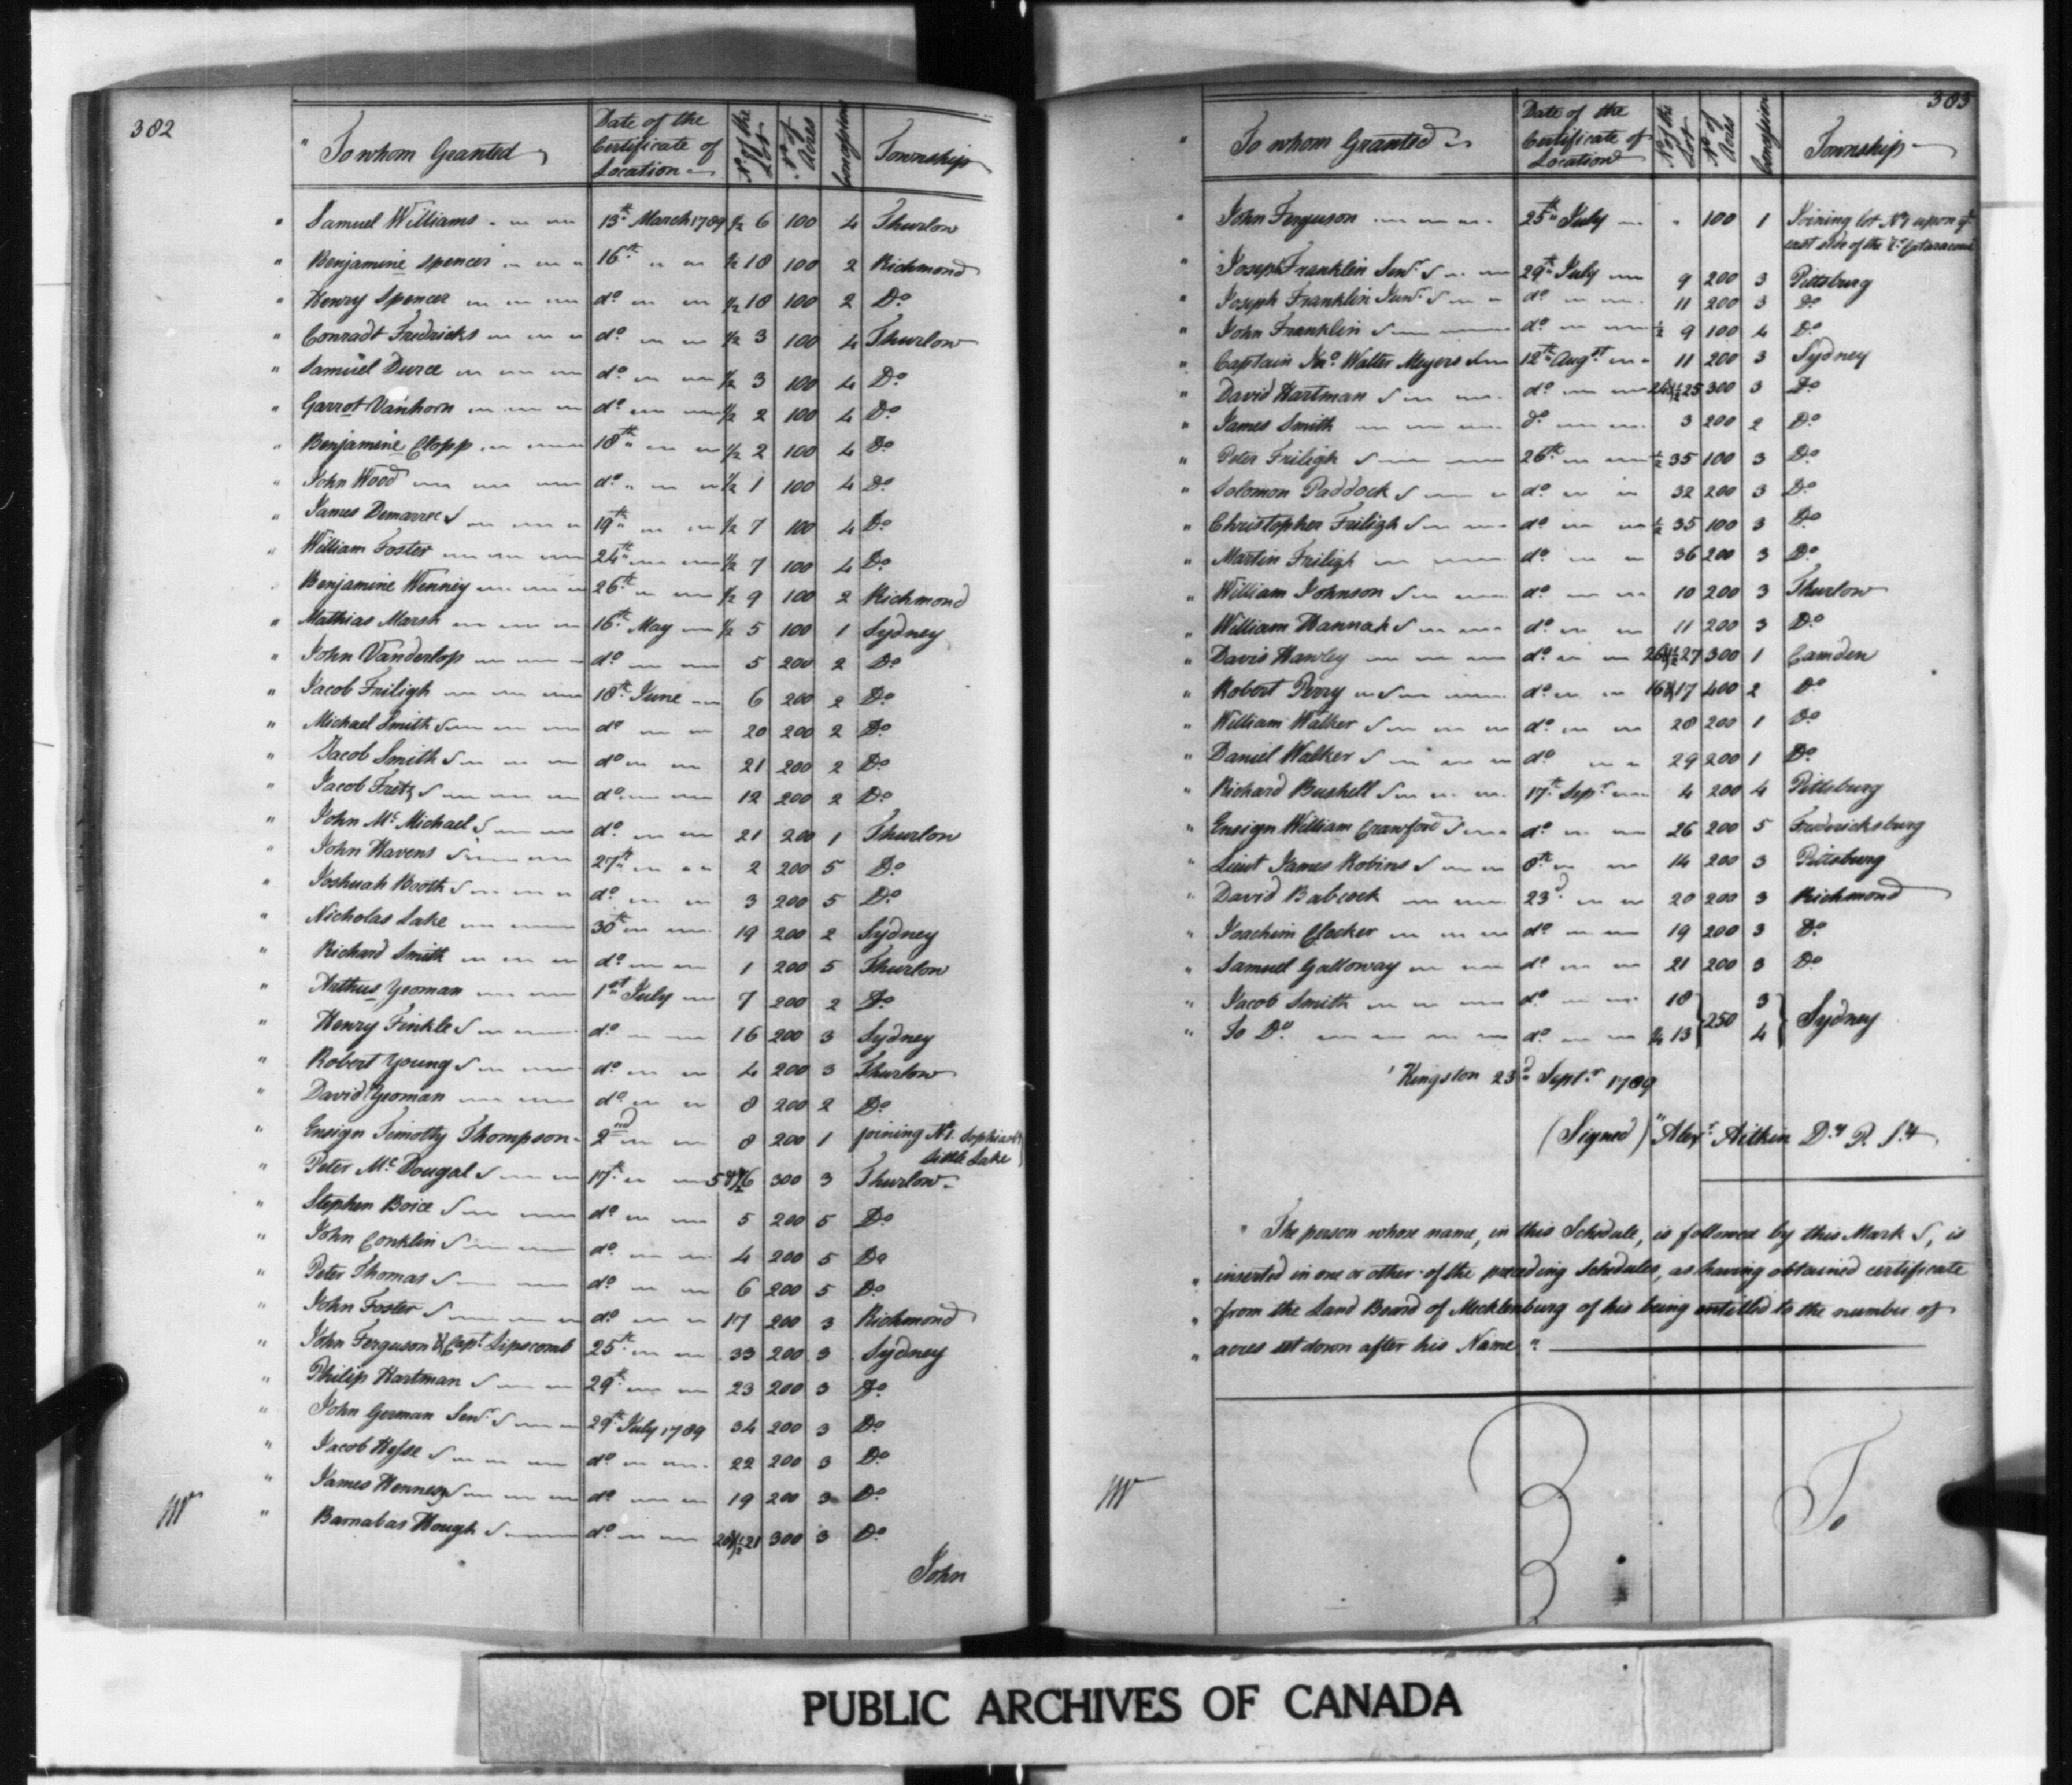 382
" To whom Granted Date of the Certificate of Location No. of the Lot No. of Acres Concession Township
" Samuel Williams 13th March 1789 ½ 6 100 4 Thurlow
" Benjamine Spencer 16th ½ 18 100 2 Richmond
" Henry Spencer do ½ 18 100 2 Do
" Conradt Fredricks do ½ 3 100 4 Thurlow
" Samuel Durce do ½ 3 100 4 Do
" Garrot Vanhorn do ½ 2 100 4 Do
" Benjamine Clopp 18th ½ 2 100 4 Do
" John Wood do ½ 1 100 4 Do
" James Demarree S 19th ½ 7 100 4 Do
" William Foster 24th ½ 7 100 4 Do
" Benjamine Wenney 26th ½ 9 100 2 Richmond
" Mathias Marsh 16th May ½ 5 100 1 Sydney
" John Vanderlop do 5 200 2 Do
" Jacob Friligh 18th June 6 200 2 Do
" Michael Smith S do 20 200 2 Do
" Jacob Smith S do 21 200 2 Do
" Jacob Fretz S do 12 200 2 Do
" John Mc Michael S do 21 200 1 Thurlow
" John Havens S 27th 2 200 5 Do
" Joshuah Booth S do 3 200 5 Do
" Nicholas Lake 30th 19 200 2 Sydney
" Richard Smith do 1 200 5 Thurlow
" Arthus Yeoman 1st July 7 200 2 Do
" Henry Finkle S do 16 200 3 Sydney
" Robert Young S do 4 200 3 Thurlow
" David Yeoman do 8 200 2 Do
" Ensign Timothy Thompson 2nd 8 200 1 joining No 1. Sophias
little Lake
" Peter Mc Dougal S 17th 5 & ½ 6 300 3 Thurlow
" Stephen Boice S do 5 200 5 Do
" John Conklin S do 4 200 5 Do
" Peter Thomas S do 6 200 5 Do
" John Foster S do 17 200 3 Richmond
" John Ferguson & Capt Lipscomb 25th 33 200 3 Sydney
" Philip Hartman S 29th 23 200 3 Do
" John German Senr S 29th July 1789 34 200 3 Do
" Jacob Hesse S do 22 200 3 Do
" James Hennesy S do 19 200 3 Do
" Barnabas Hough S do 20 & ½ 21 300 3 Do
John
383
" To whom Granted Date of the Certificate of Location No of the Lot No of Acres Concession Township
" John Ferguson 25th July " 100 1 Joining lot No 1 upon ye
east side of the Cataracoui
" Joseph Franklin Senr S 29th July 9 200 3 Pittsburg
" Joseph Franklin Junr S do 11 200 3 Do
" John Franklin S do ½ 9 100 4 Do
" Captain Jno Walter Meyers S 12th Augst 11 200 3 Sydney
" David Hartman S do 24 & ½ 25 300 3 Do
" James Smith do 3 200 2 Do
" Peter Friligh S 26th ½ 35 100 3 Do
" Solomon Paddock S do 32 200 3 Do
" Christopher Friligh S do ½ 35 100 3 Do
" Martin Friligh do 36 200 3 Do
" William Johnson S do 10 200 3 Thurlow
" William Hannah S do 11 200 3 Do
" Davis Hawley do 26 & ½ 27 300 1 Camden
" Robert Perry S do 16 & 17 400 2 Do
" William Walker S do 28 200 1 Do
" Daniel Walker S do 29 200 1 Do
" Richard Bushell S 17th Sepr 4 200 4 Pittsburg
" Ensign William Crawford S do 26 200 5 Fredericksburg
" Lieut James Robins S 8th 14 200 3 Pittsburg
" David Babcock 23d 20 200 3 Richmond
" Joachim Clocker do 19 200 3 Do
" Samuel Galloway do 21 200 3 Do
" Jacob Smith do 18 } 250 3 } Sydney
" To Do do ¼ 13 4
' Kingston 23d Septr 1789
(Signed) "Alexr Aitkin Dy P. Sr
" The person whose name, in this Schedule, is followed by this Mark S, is
" inserted in one or other of the preceding Schedules, as having obtained certificate
" from the Land Board of Mecklenburg of his being entitled to the number of
" acres set down after his Name "
To
PUBLIC ARCHIVES OF CANADA